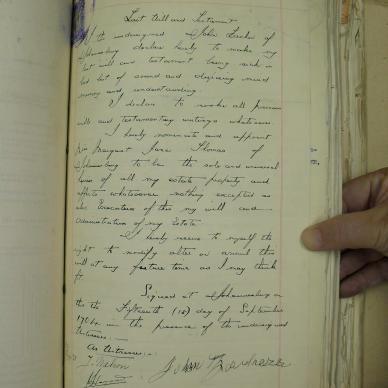 Last Will and Testament
I the undersigned John of
Johannesburg declare hereby to make my
last will and testament being sick in
bed but of sound and disposing mind
memory and understanding.
I declare to revoke all previous
wills and testamentary writings whatsoever.
I hereby nominate and appoint
Margaret Jane Thomas of
Johannesburg to be the sole and universal
heiress of all my estate property and
effects whatsoever nothing excepted as
also Executrix of this my will and
Administration of my Estate.
I hereby reserve to myself the
right to modify alter or annul this
will at any future time as I may think
fit.
Signed at Johannesburg on
this the Fifteenth (15) day of September
in the presence of the undersigned
Witnesses:-
As Witnesses:-
John